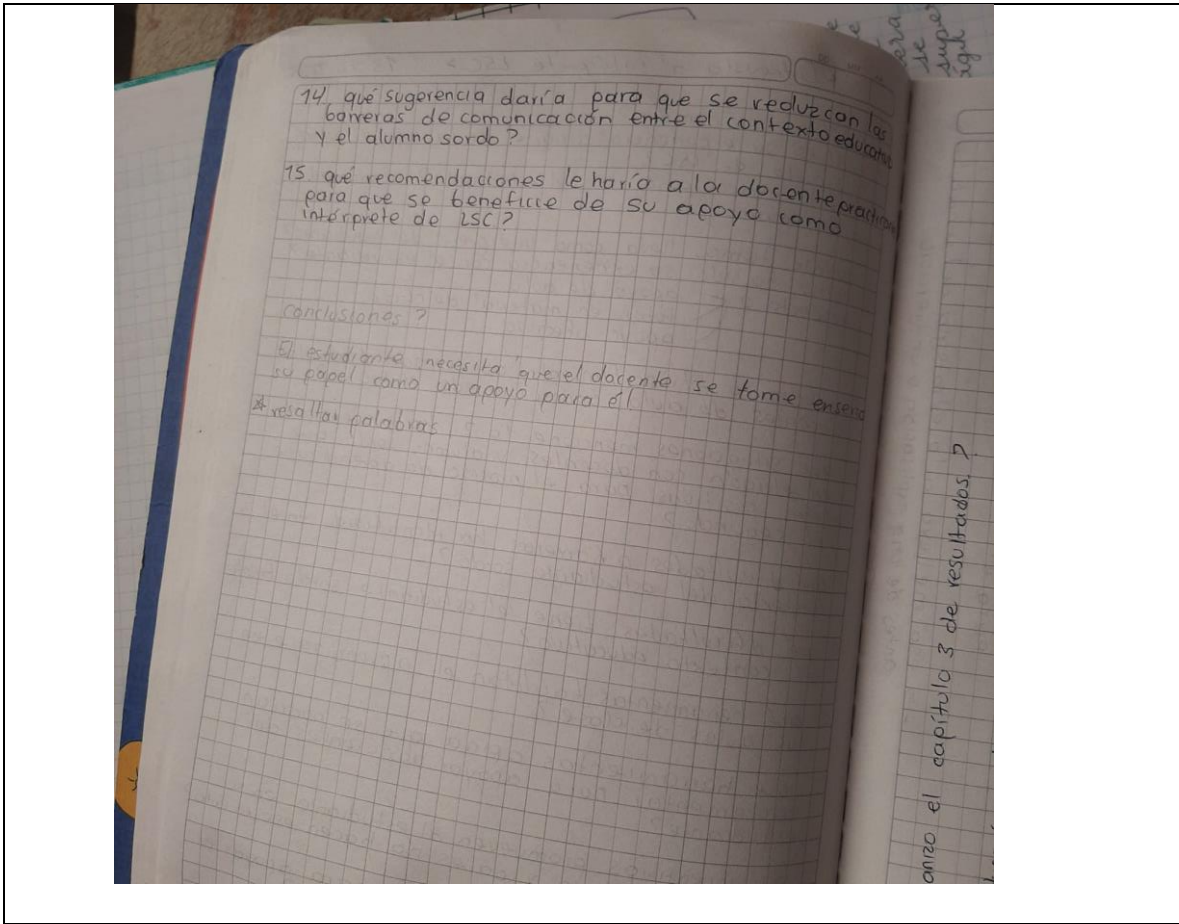 14. qué sugerencia daría para que se reduzcan las
barreras de comunicación entre el contexto educativo
y el alumno sordo?
15 qué recomendaciones le haría a la docente practicante
para que se beneficie de su apoyo como
intérprete de LSC?
conclusiones?
El estudiante necesita que el docente se tome enserio
su papel como un apoyo para él
* resaltar palabras
anizo el capítulo 3 de resultados?
se
super
ágil